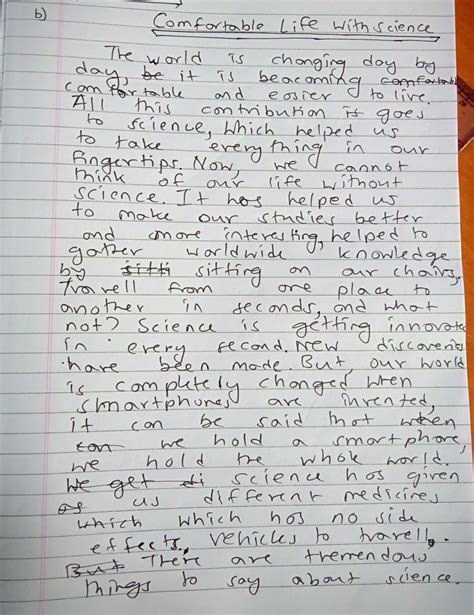 b)
Comfortable Life with science
The world is changing day by
day, be it is beacoming comfortab
comfortable and easier to live.
All this contribution is goes
to science, which helped us
to take everything in our
fingertips. Now, we cannot
think of our life without
science. It has helped us
to make our studies better
and more interesting, helped to
gather worldwide knowledge
by sitti sitting on our chairs.
Travell from one place to
another in seconds, and what
not? Science is getting innovate
in every second. New discoveries
have been made. But, our world
is completely changed when
smartphones are invented,
it can be said that when
can we hold a smartphone,
we hold the whole world.
We get di science has given
us different medicines
which which has no side
effects, vehicles to travell.
But There are tremendous
things to say about science.